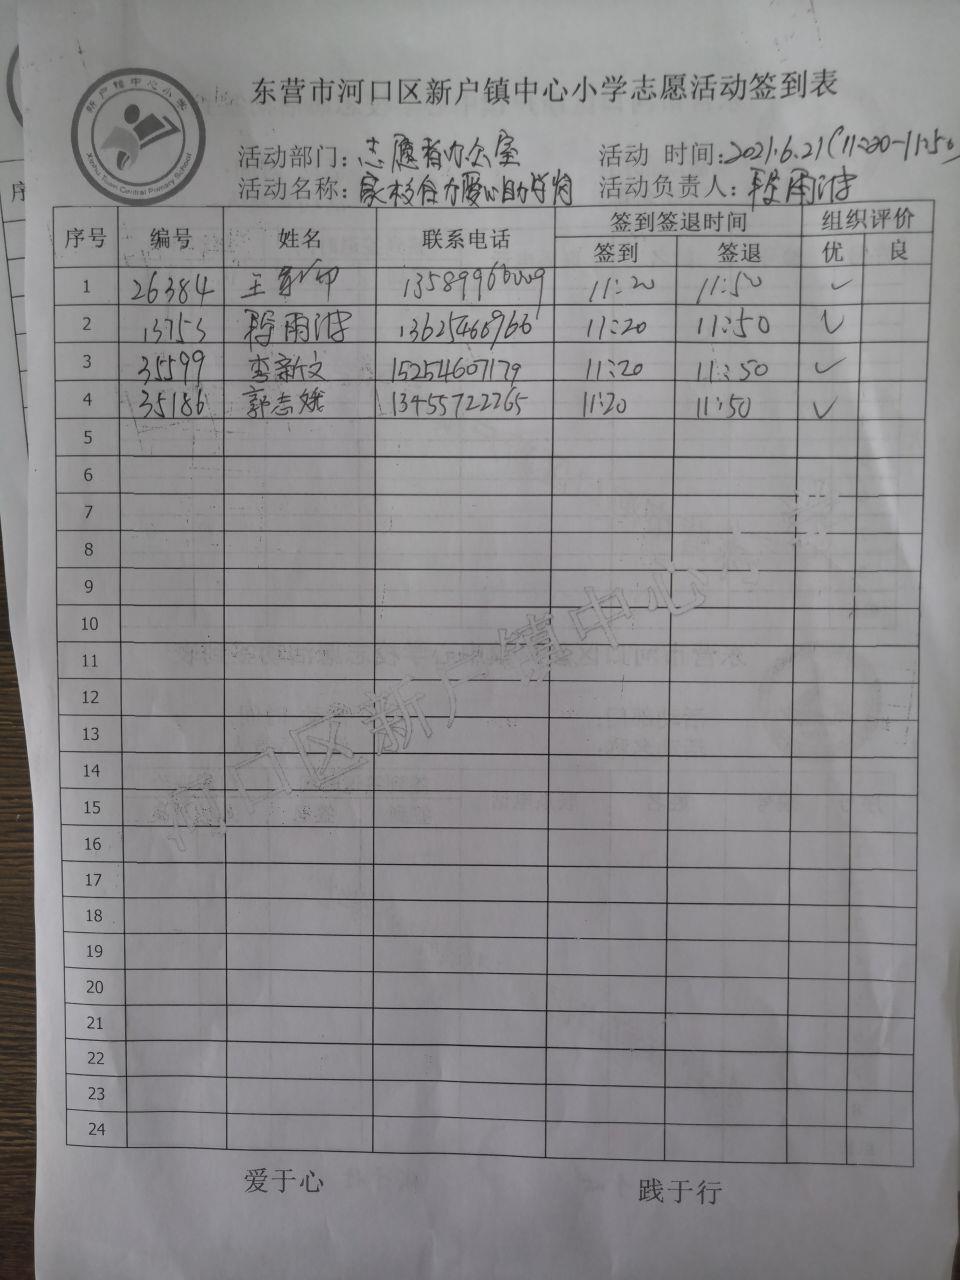 新户镇中心小学
Xinhu Town Central Primary School
东营市河口区新户镇中心小学志愿活动签到表
活动部门：志愿者办公室 活动 时间：2021.6.21(11:20-11:50)
活动名称：家校合力爱心助学岗 活动负责人：段雨波
序号 编号 姓名 联系电话 签到签退时间 组织评价
签到 签退 优 良
1 26384 王 13589966009 11:20 11:50 ✓
2 13753 段雨波 13625466966 11:20 11:50 ✓
3 35599 栾新文 15254607179 11:20 11:50 ✓
4 35186 郭志娥 13455722265 11:20 11:50 ✓
5
6
7
8
9
10
11
12
13
14
15
16
17
18
19
20
21
22
23
24
河口区新户镇中心小学
爱于心 践于行